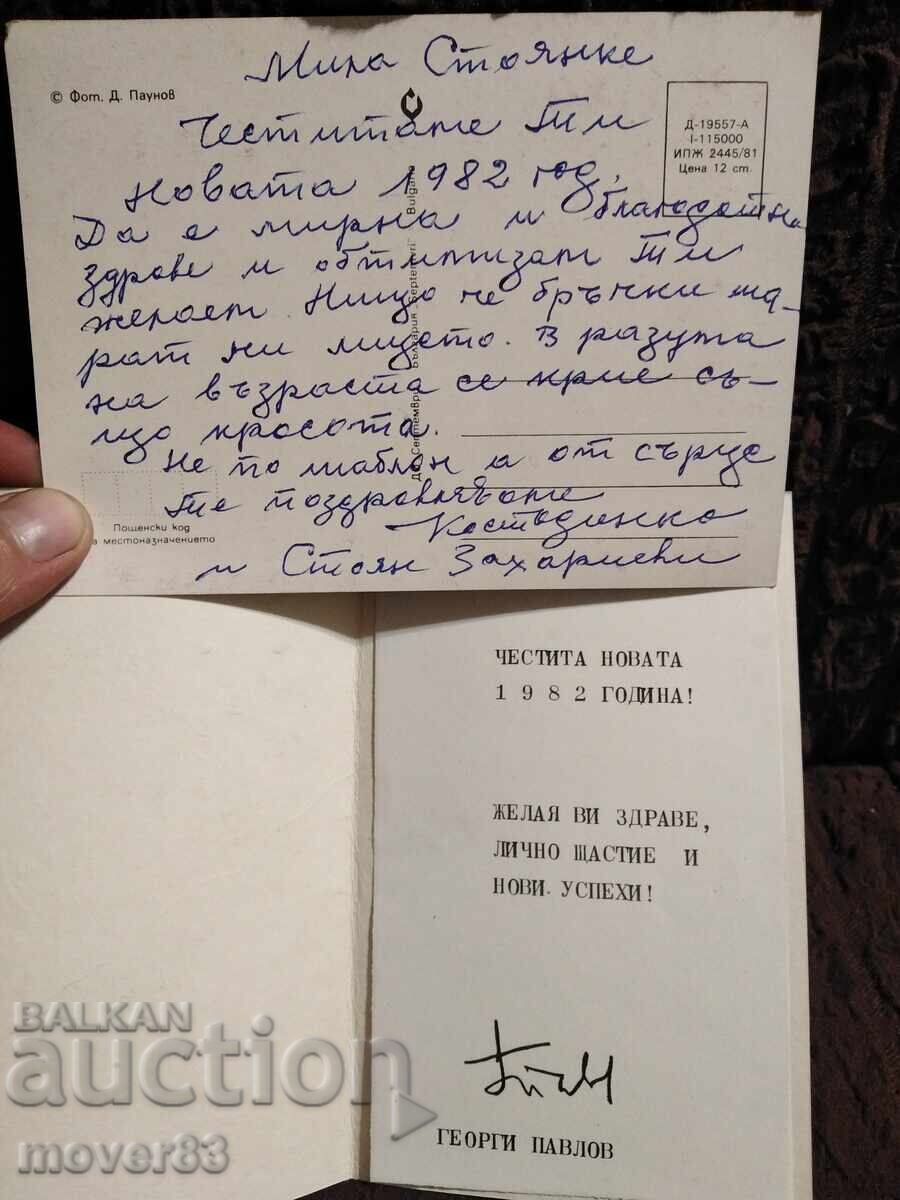 Мила Стоянке
© Фот. Д. Паунов
Д-19557-А
I-115000
ИПЖ 2445/81
Цена 12 ст.
Честитаме Ти
Новата 1982 год.
Да е мирна и благодатна
здраве и обтимизам Ти
желаем. Нищо че бръчки ша-
рат ни лицето. В разума
на възрастта се крие съ-
що красота.
Не по шаблон а от сърце
Те поздравяваме
Костадинка
и Стоян Захариеви
ДП Септември България Septemvri Bulgaria
Пощенски код
на местоназначението
ЧЕСТИТА НОВАТА
1982 ГОДИНА!
ЖЕЛАЯ ВИ ЗДРАВЕ,
ЛИЧНО ЩАСТИЕ И
НОВИ УСПЕХИ!
ГЕОРГИ ПАВЛОВ
BALKAN
auction
mover83